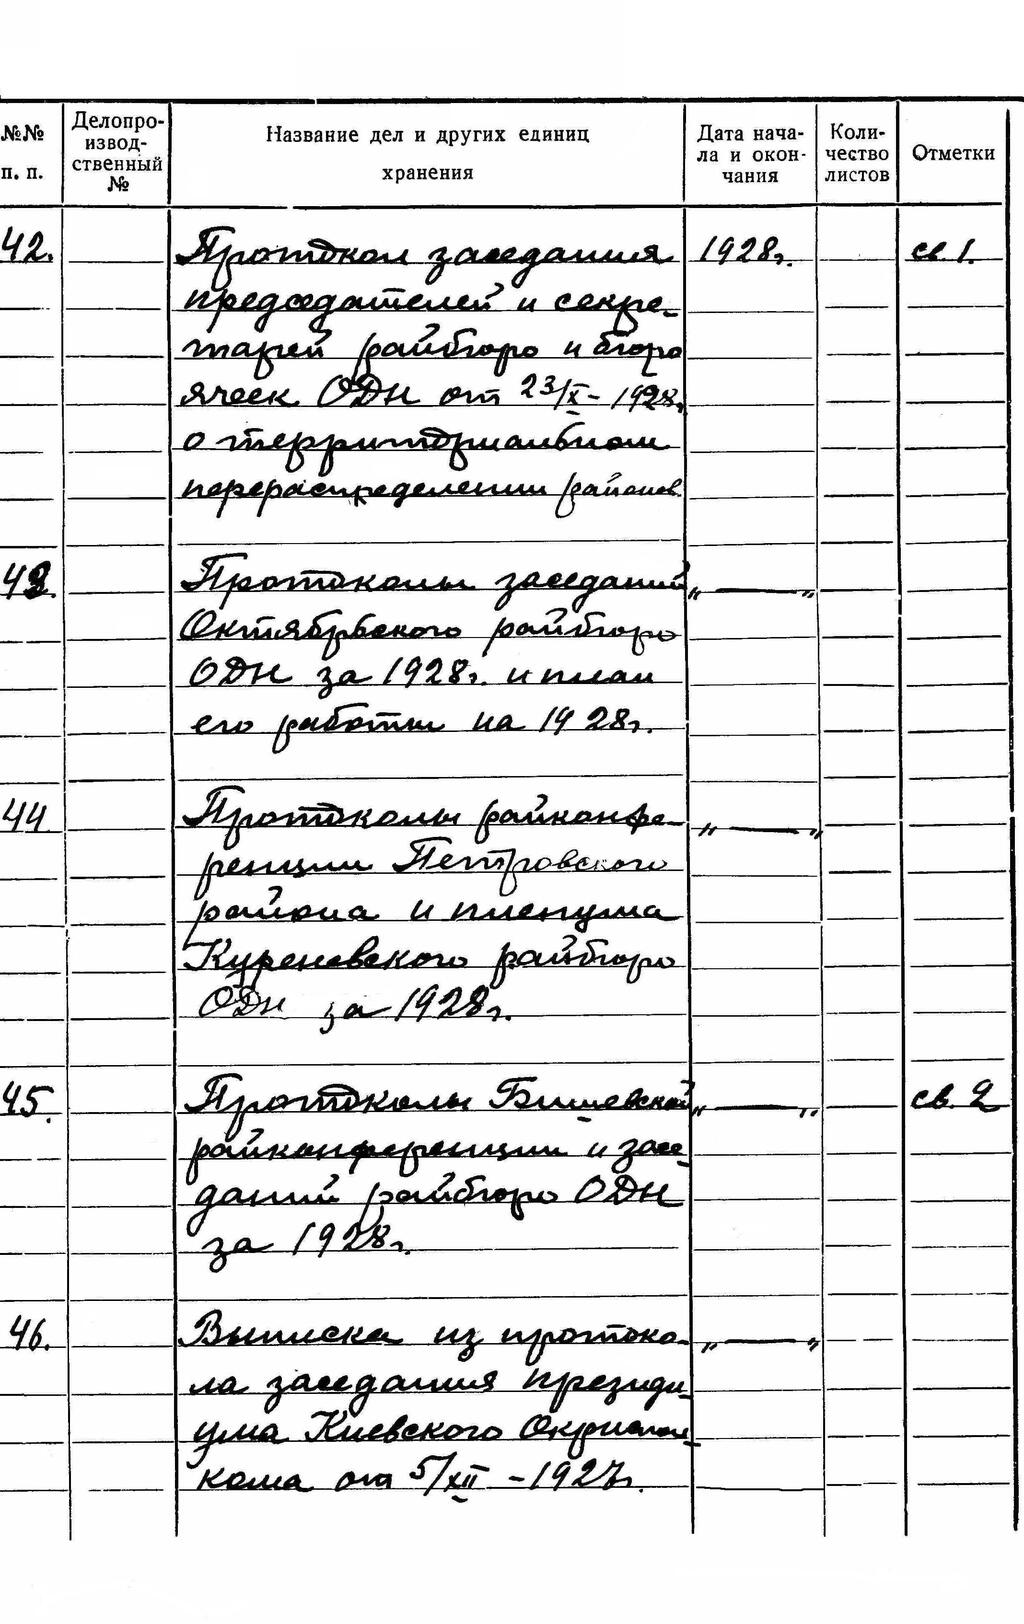 №№ п. п. Делопро-извод-ственный № Название дел и других единиц хранения Дата нача-ла и окон-чания Коли-чество листов Отметки
42. Протокол заседания 1928г. св 1.
председателей и секре-
тарей райбюро и бюро
ячеек ОДН от 23/X - 1928г.
о территориальном
перераспределении районов.
43. Протоколы заседаний „ — „
Октябрьского райбюро
ОДН за 1928г. и план
его работы на 1928г.
44 Протоколы райконфе- „ — „
ренции Петровского
района и пленума
Куреневского райбюро
ОДН за 1928г.
45. Протоколы Бышевской „ — „ св. 2
райконференции и засе-
даний райбюро ОДН
за 1928г.
46. Выписка из протоко- „ — „
ла заседания президи-
ума Киевского Окриспол-
кома от 5/XII - 1927г.